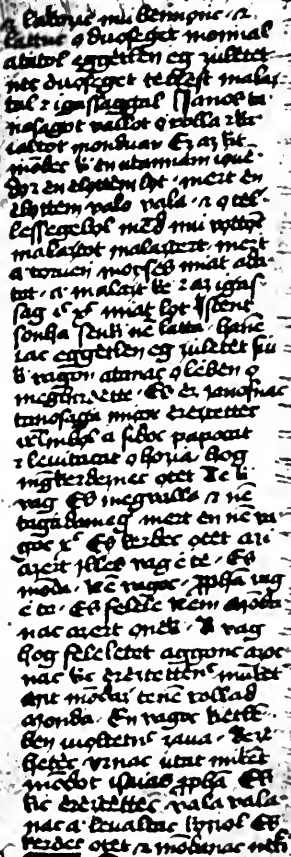 lakozic mu bennonc · z
lattuc o duosęget monnal
atatol eggetlen eg zuletet
nec duosęget tellest malaz
tal z igassaggal Janos ta
nosagot vallot o rolla z ki
altot monduan Ez az kit
mōdec ki en utannam ioue
do z en elottem lot · mert en
elottem valo vala · z o tel
lessegebol mēd mui vottōc
malaztot malaztert · mert
a toruen moyses miat ada
tot · a malazt ke z az igas
sag is xs miat lot Istent
sonha senki nē latta · hanē
iac eggetlen eg zuletet fiu
ki vagon atanac o keblen o
megbezellette · Es ez ianosnac
tanosaga micor ereztettec
irlmbol a sidoc papocat
z levitacat o hozia hog
mgkerdeznec otet Te ki
vag Es megvalla z nē
tagada meg mert en nē va
goc xs Es kerdec otet azi
azert illes vag e te · Es
mōda · Nē vagoc · ppha vag
e te · Es felele Nem
azert onekik · Ki vag
hog feleletet aggonc azoc
nac kic ereztettenc mūket
mit mōdaz tenē rollad
En vagoc kietko
ben zaua ·
vrnac utat mikēt
mōdot isaias ppha Es
kic ereztettec vala vala
nac a levaltac kozzol Es
kerdec otet z mōdanac neki